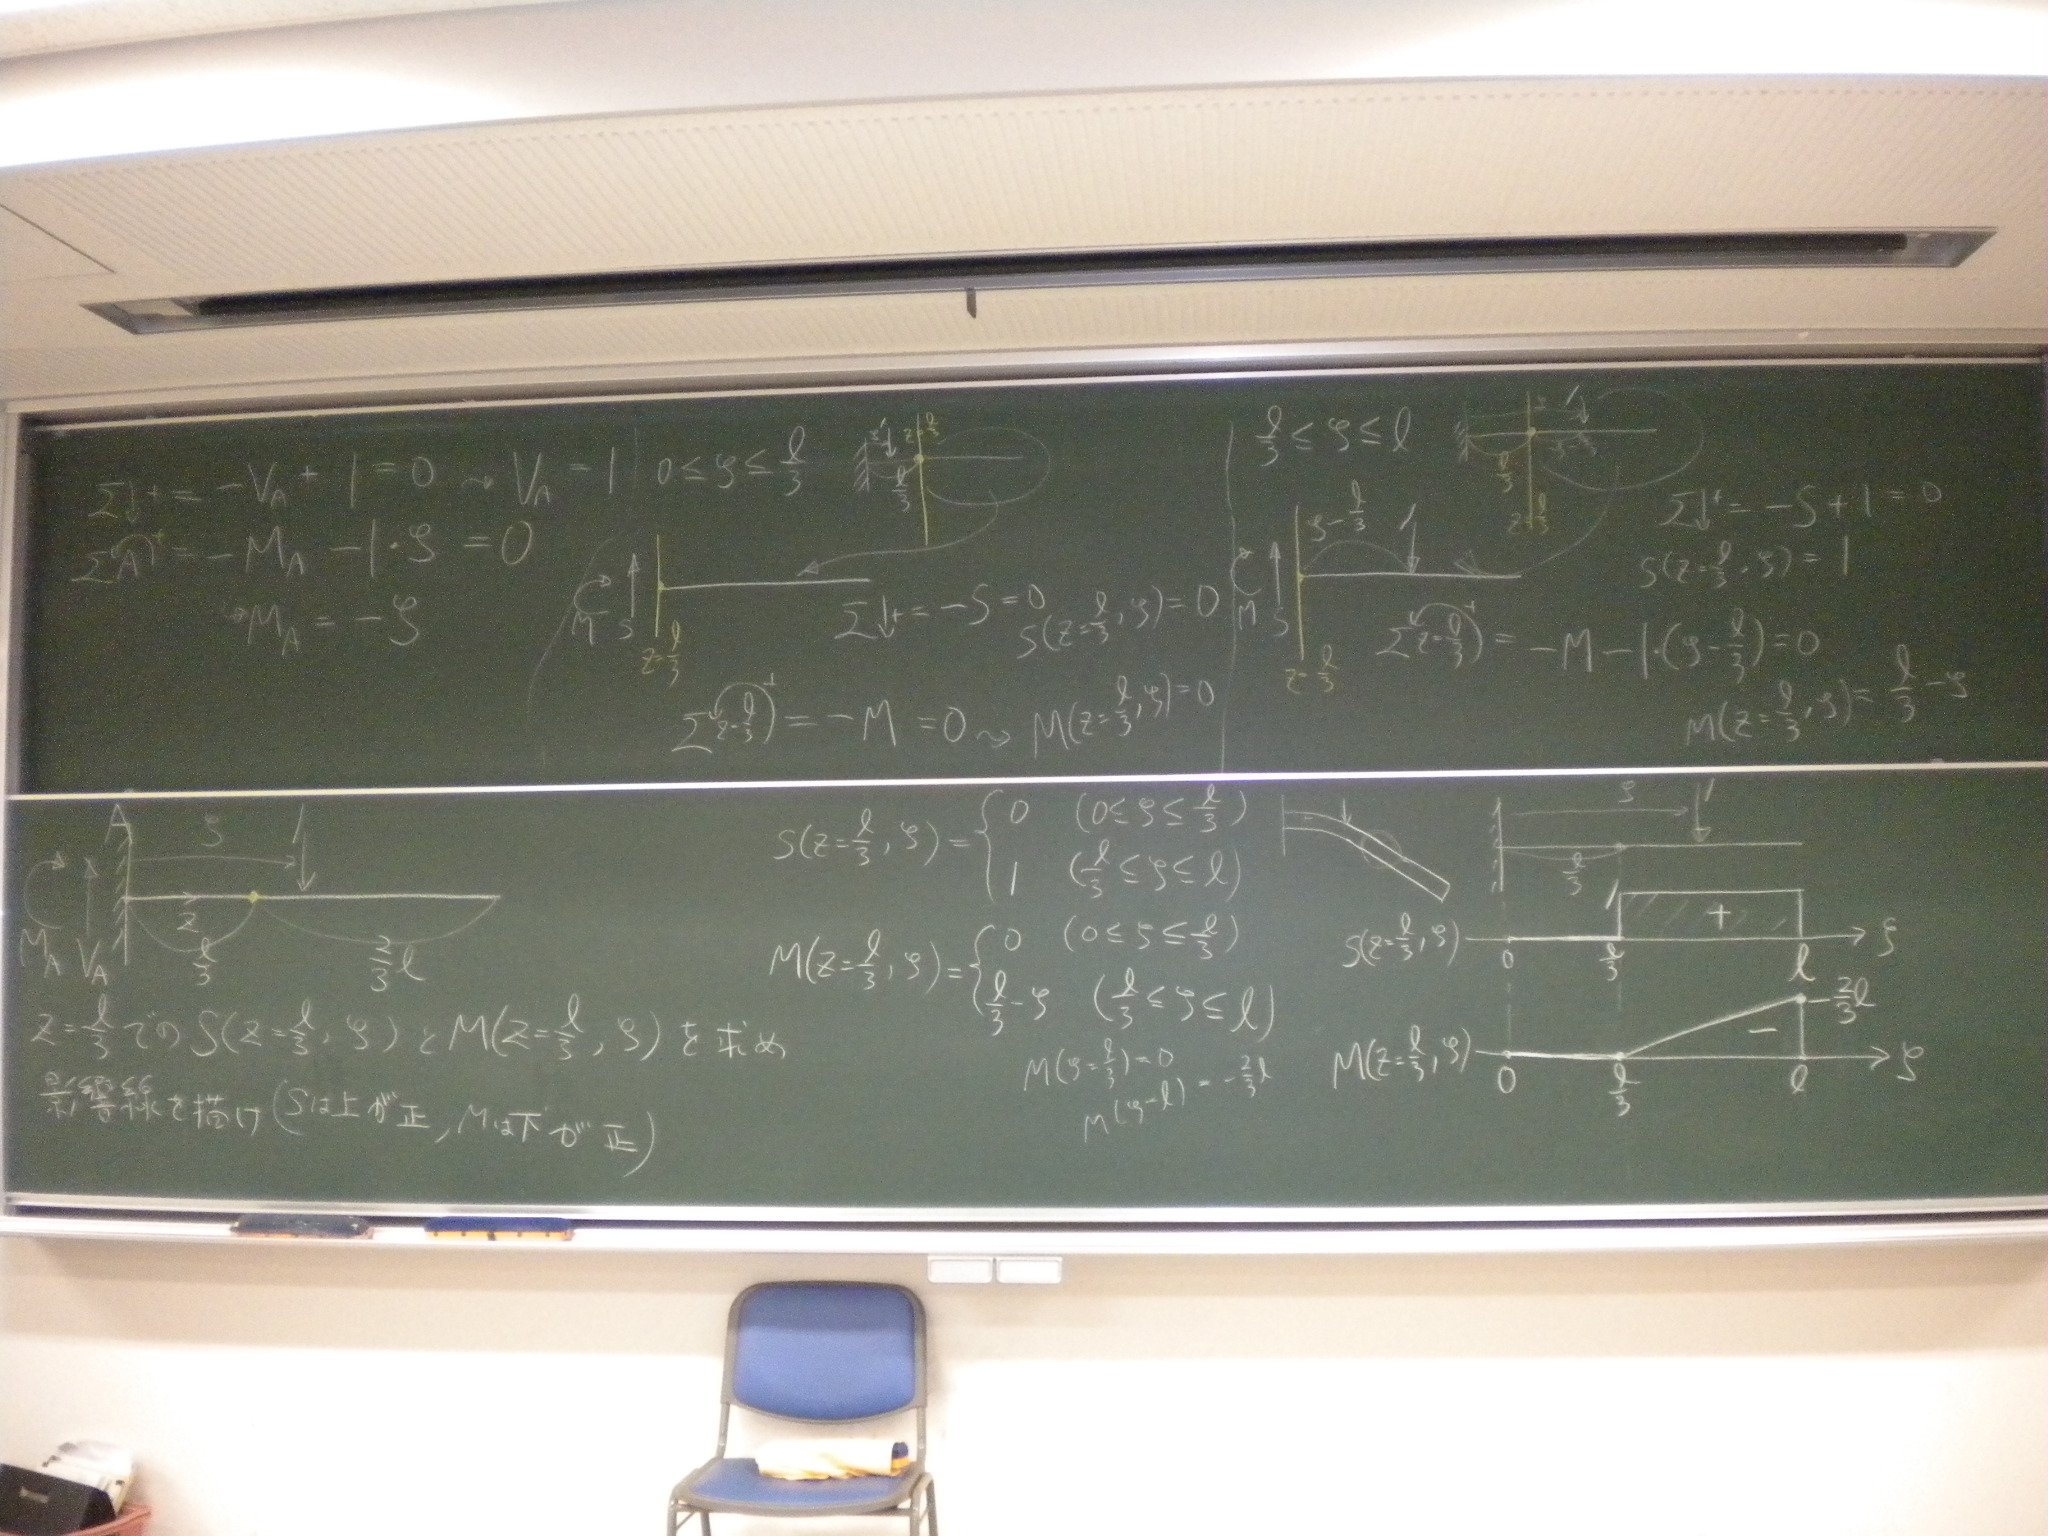 Σ↓+ = -V_A + 1 = 0 ⇝ V_A = 1
ΣA+ = -M_A - 1・ζ = 0
⇝ M_A = -ζ
0 ≤ ζ ≤ l/3
1
z=l/3
l/3
M S
z=l/3
Σ↓+ = -S = 0
S(z=l/3, ζ) = 0
Σ(z=l/3)+ = -M = 0 ⇝ M(z=l/3, ζ) = 0
l/3 ≤ ζ ≤ l
ζ
1
l/3
ζ-l/3
z=l/3
ζ-l/3
1
M S
z=l/3
Σ↓+ = -S + 1 = 0
S(z=l/3, ζ) = 1
Σ(z=l/3)+ = -M - 1・(ζ-l/3) = 0
M(z=l/3, ζ) = l/3 - ζ
A
ζ
1
z
M_A V_A
l/3
2/3 l
z=l/3 での S(z=l/3, ζ) と M(z=l/3, ζ) を求め
影響線を描け(Sは上が正, Mは下が正)
S(z=l/3, ζ) = { 0 (0 ≤ ζ ≤ l/3)
1 (l/3 ≤ ζ ≤ l)
M(z=l/3, ζ) = { 0 (0 ≤ ζ ≤ l/3)
l/3 - ζ (l/3 ≤ ζ ≤ l)
M(ζ=l/3) = 0
M(ζ=l) = -2/3 l
ζ
1
l/3
1
+
S(z=l/3, ζ)
0
l/3
l
ζ
-2/3 l
-
M(z=l/3, ζ)
0
l/3
l
ζ